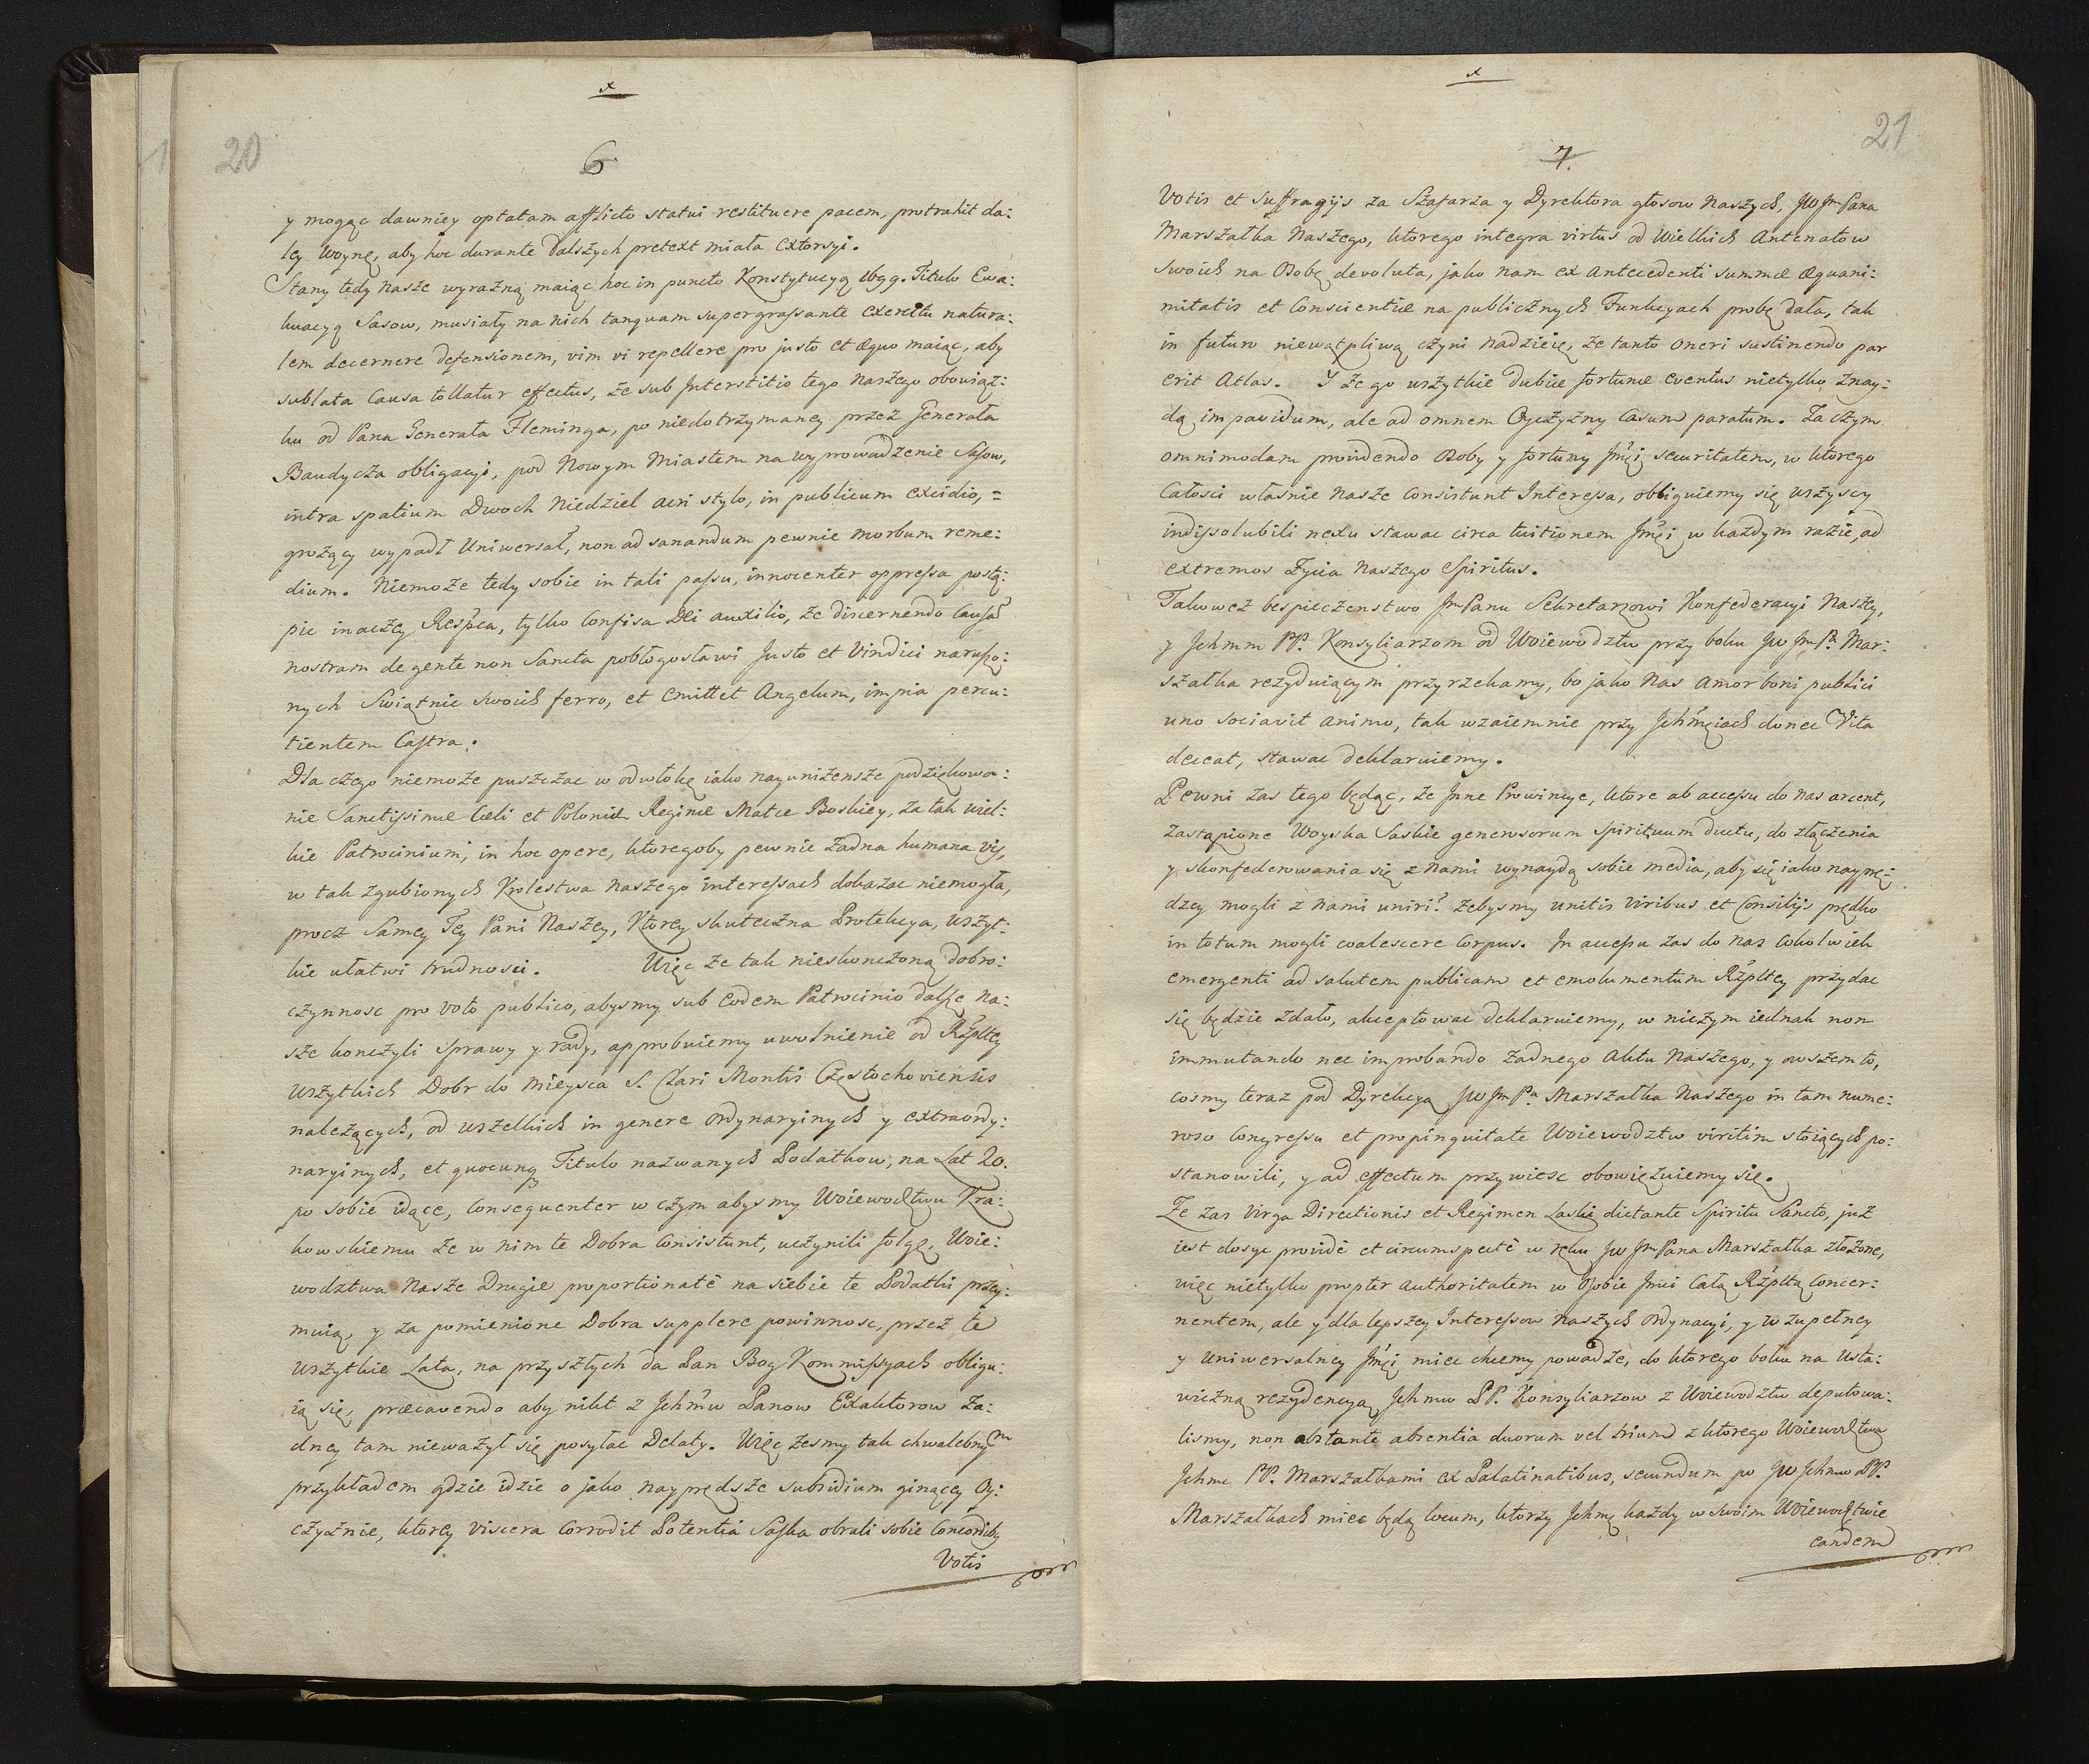 x
20
6
y mogąc dawniey optatam afflicto statui restituere pacem, protrahit da:
ley Woynę, aby hoc durante dalszych pretext miała extorsyi.
Stany tedy nasze wyraźną maiąc hoc in puncto Konstytucyą 1699. Titulo Ewa:
kuacyą Sasow, musiały na nich tanquam supergrassante exercitu natura:
lem decernere defensionem, vim vi repellere pro justo et æquo maiąc, aby
sublata Causa tollatur effectus, że sub Interstitio tego naszego obowiąz:
ku od Pana Generała Fleminga, po niedotrzymaney przez Generała
Baudycza obligacyi, pod Nowym Miastem na wyprowadzenie Sasow,
intra spatium Dwoch Niedziel acri stylo, in publicum excidio, =
grożący wypadł Uniwersał, non ad sanandum pewnie morbum reme:
dium. Niemoże tedy sobie in tali passu, innocenter oppressa postą:
pic inaczey Respca, tylko Confisa Dei auxilio, że discernendo Causam
nostram de gente non Sancta pobłogosławi Justo et Vindici naruszo:
nych Swiątnic swoich ferro, et emittet Angelum, impia percu:
tientem Castra.
Dla czego niemoże puszczac w odwłokę iako nayuniżensze podziękowa:
nie Sanctissimæ Cœli et Poloniæ Reginæ Matce Boskiey, za tak wiel:
kie Patrocinium, in hoc opere, ktoregoby pewnie żadna humana vis,
w tak zgubionych Krolestwa naszego interessach dokazac niemogła,
procz Samey Tey Pani Naszey, Ktorey skuteczna Protekcya, wszyt:
kie ułatwi trudnosci. Więc że tak nieskonczoną dobro:
czynnosc pro voto publico, abysmy sub eodem Patrocinio dalsze na:
sze konczyli sprawy y rady, approbuiemy uwolnienie od Rzpltey
wszytkich Dobr do mieysca S. Clari Montis Częstochoviensis
należących, od wszelkich in genere ordynaryinych y extraordy:
naryinych, et quocunq Titulo nazwanych Podatkow, na Lat 20.
po sobie idące, Consequenter w czym abysmy Woiewodztwu Kra:
kowskiemu że w nim te Dobra Consistunt, uczynili folgę, Woie:
wodztwa Nasze Drugie proportionatè na siebie te Podatki przey:
muią, y za pomienione Dobra supplere powinnosc, przez te
wszytkie Lata, na przyszłych da Pan Bog Kommissyach obligu:
ią się, præcavendo aby nikt z Jchmw Panow Exaktorow ża:
dney tam nieważył się posyłac Delaty. Więc żesmy tak chwalebnym
przykładem gdzie idzie o jako nayprędsze subsidium ginącey Oy:
czyznie, ktorey viscera Corrodit Potentia Saska obrali sobie Concordibq
Votis
x
21
7.
Votis et Suffragijs za Szafarza y Dyrektora głosow naszych, JW Jm Pana
Marszałka Naszego, ktorego integra virtus od Wielkich Antenatow
swoich na Osobę devoluta, jako nam ex Antecedenti summæ æquani:
mitatis et Conscientiæ na publicznych Funkcyach probę dała, tak
in futuro niewątpliwą czyni nadzieię, że tanto oneri sustinendo par
erit Atlas. Y że go wszytkie dubiæ fortunæ eventus nietylko znay:
dą impavidum, ale ad omnem Oyczyzny Casum paratum. Zaczym
omnimodam providendo Osoby y fortuny Jmci securitatem, w ktorego
Całosci własnie nasze Consistunt Interessa, obliguiemy się wszyscy
indissolubili nexu stawac circa tuitionem Jmci w każdym razie, ad
extremos Życia Naszego Spiritus.
Takoweż bespieczenstwo Jm Panu Sekretarzowi Konfederacyi Naszey,
y Jchmm PP. Konsyliarzom od Woiewodztw przy boku JW JmPa Mar:
szałka rezyduiącym przyrzekamy, bo jako Nas amor boni publici
uno sociavit animo, tak wzaiemnie przy Jchmciach donec Vita
deceat, stawac deklaruiemy.
Pewni zas tego będąc, że Jnne Prowincye, ktore ab accessu do nas arcent,
zastąpione Woyska Saskie generosorum Spirituum ductu, do złączenia
y skonfederowania się z nami wynaydą sobie media, aby się iako nayprę:
dzey mogli z nami uniri? żebysmy unitis Viribus et Consilijs prędko
in totum mogli coalescere Corpus. In accessu zas do nas cokolwiek
emergenti ad salutem publicam et emolumentum Rzpltey przydac
się będzie zdało, akceptowac deklaruiemy, w niczym iednak non
immutando nec improbando żadnego Aktu Naszego, y owszem to,
cosmy teraz pod Dyrekcyą JW Jm Pa Marszałka Naszego in tam nume:
roso Congressu et propinquitate Woiewodztw viritim stoiących po:
stanowili, y ad effectum przywiesc obowięzuiemy się.
Że zas Virga Directionis et Regimen Laski dictante Spiritu Sancto, już
iest dosyc providè et circumspectè w ręku JW Jm Pana Marszałka złożone,
więc nietylko propter authoritatem w Osobie Jmci Całą Rzpltą Concer:
nentem, ale y dla lepszey Interessow naszych Ordynacyi, y w zupełney
y Uniwersalney Jmci miec chcemy powadze, do ktorego boku na usta:
wiczną rezydencyą Jchmw PP. Konsyliarzow z Woiewodztw deputowa:
lismy, non obstante absentia duorum vel trium z ktorego Woiewodztwa
Jchmc PP. Marszałkami ex Palatinatibus, secundum po JW Jchmw PP.
Marszałkach miec będą locum, ktorzy Jchmc każdy w swoim Woiewodztwie
eandem